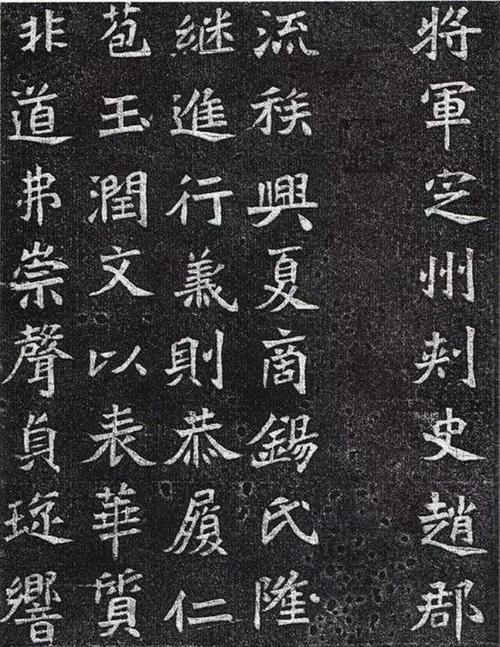 将軍定州刾史趙郡
流族興夏商錫氏隆
継進行義則恭履仁
苞玉潤文以表華質
非道弗崇聲貞琁響